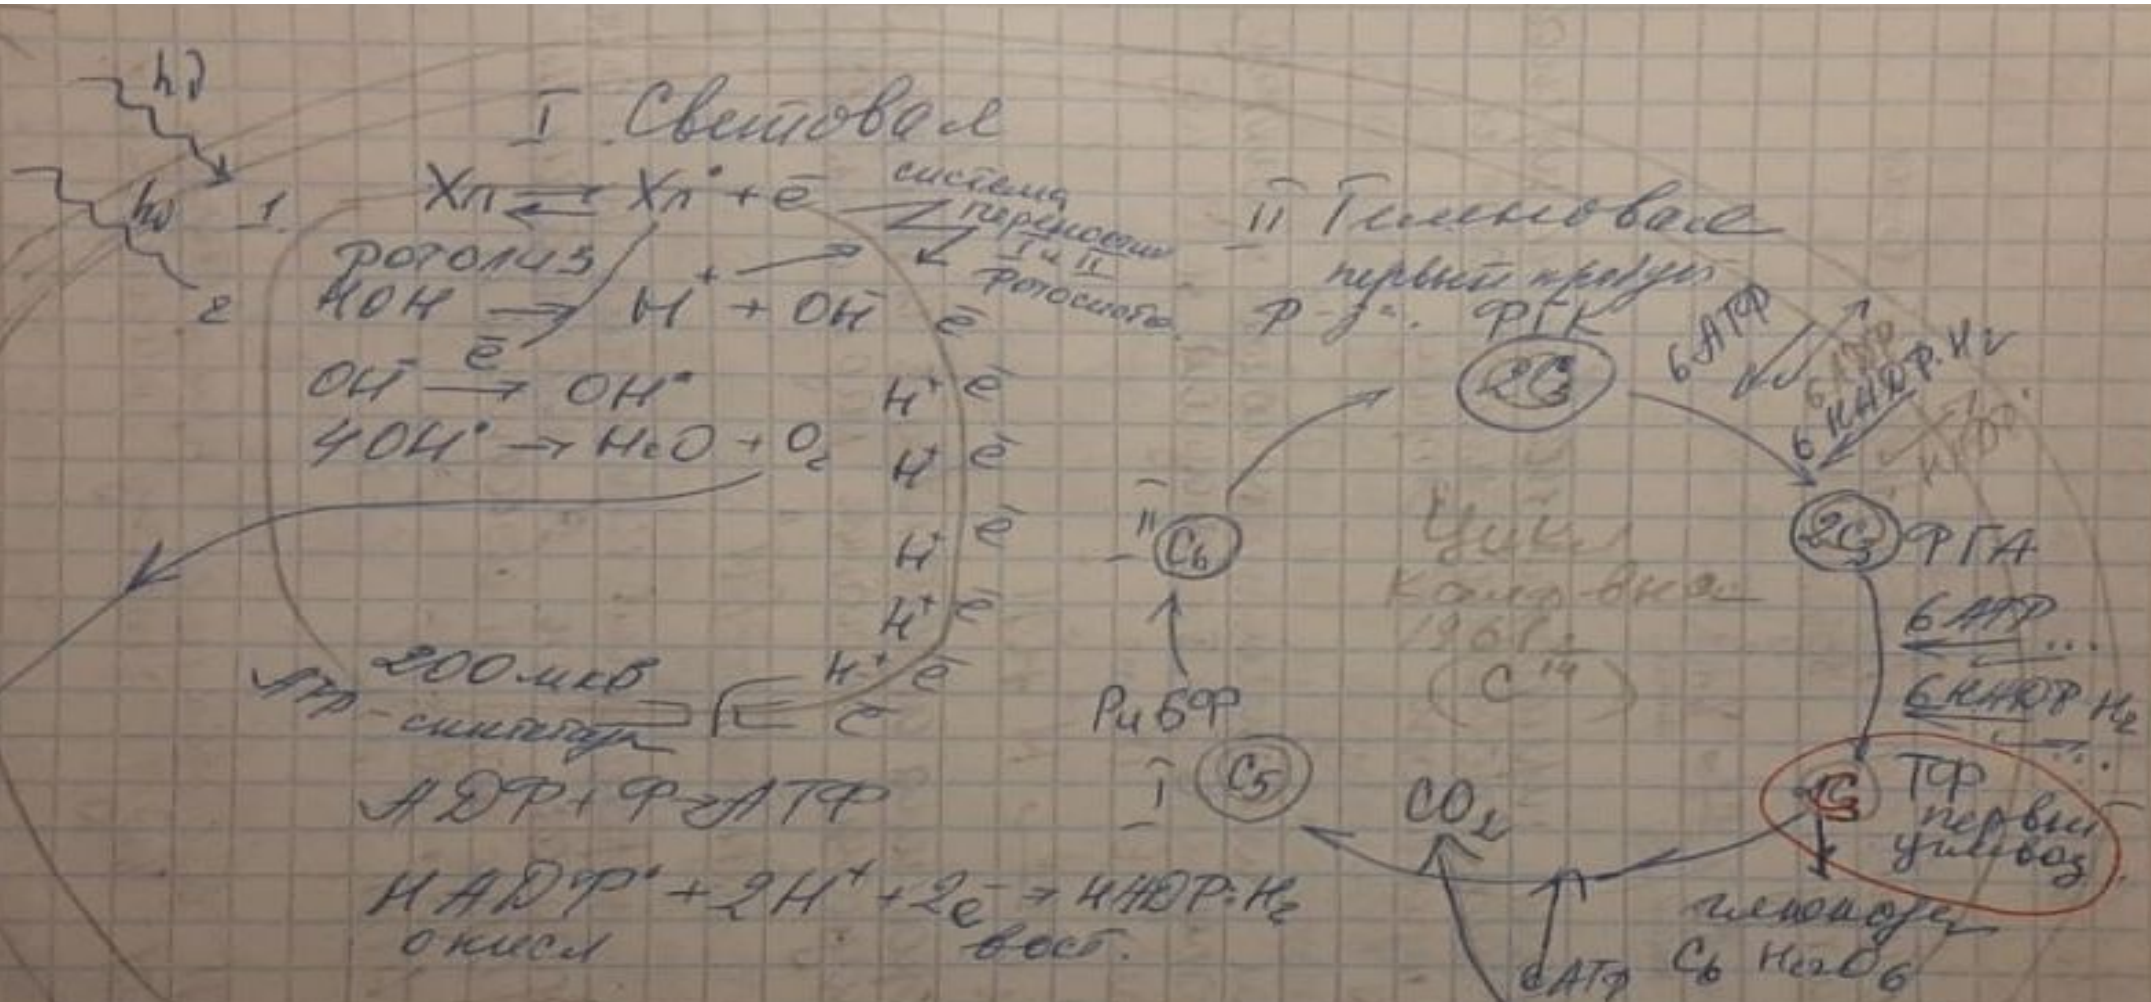 hν
hν
1.
2
I. Световая
Хл ⇌ Хл• + ē
система
переносчик
I и II
фотосист.
фотолиз
HOH → H⁺ + OH⁻
ē
OH⁻ → OH•
4OH• → H₂O + O₂
ē
H⁺ ē
H⁺ ē
H⁺ ē
H⁺ ē
H⁺ ē
ē
200 мкв
АТФ-синтетаза
АДФ + Ф = АТФ
НАДФ⁺ + 2H⁺ + 2ē → НАДФ·H₂
окисл вост.
II Темновая
первый продукт
ф-за. ФГК
2C₃
6 АТФ
6 АДФ
6 НАДФ·H₂
НАДФ⁺
2C₃ ФГА
6 АТФ ...
6 НАДФ·H₂
...
C₃ ТФ
первый
углевод
глюкоза
C₆H₁₂O₆
6АТФ
CO₂
I C₅
РиБФ
II C₆
Цикл
Кальвина
1961г.
(C¹⁴)